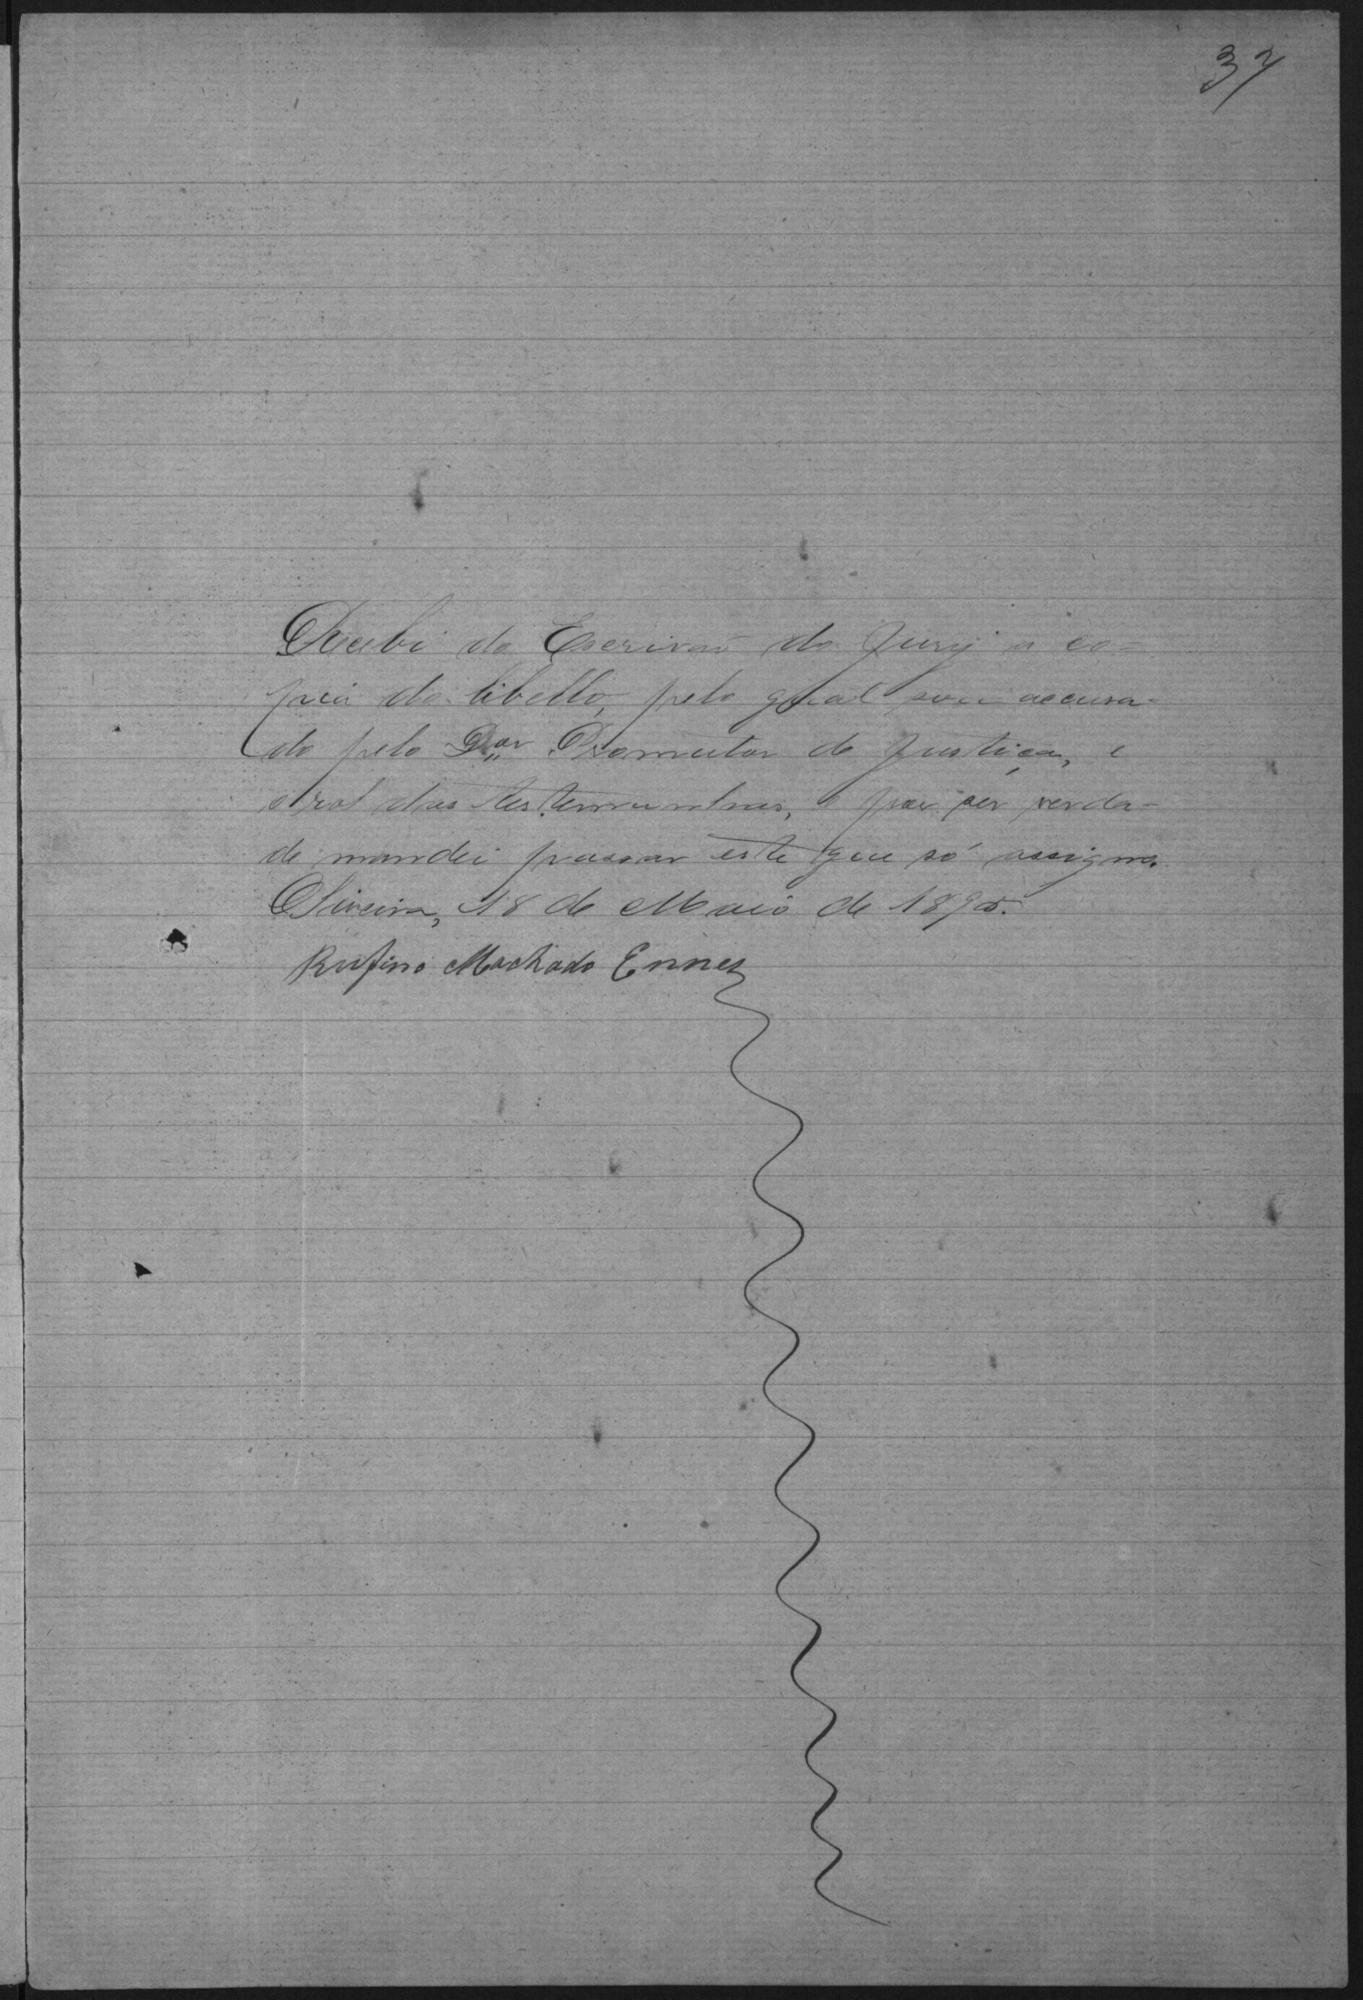 37
Recebi do Escrivão do Jury a co-
pia do libello, pelo qual sou accusa-
do pelo Dor Promutor de Justiça, e
o rol das testemunhas, e por ser verda-
de mandei passar este que só assigno.
Oliveira, 18 de Maio de 1895.
Rufino Machado Ennes